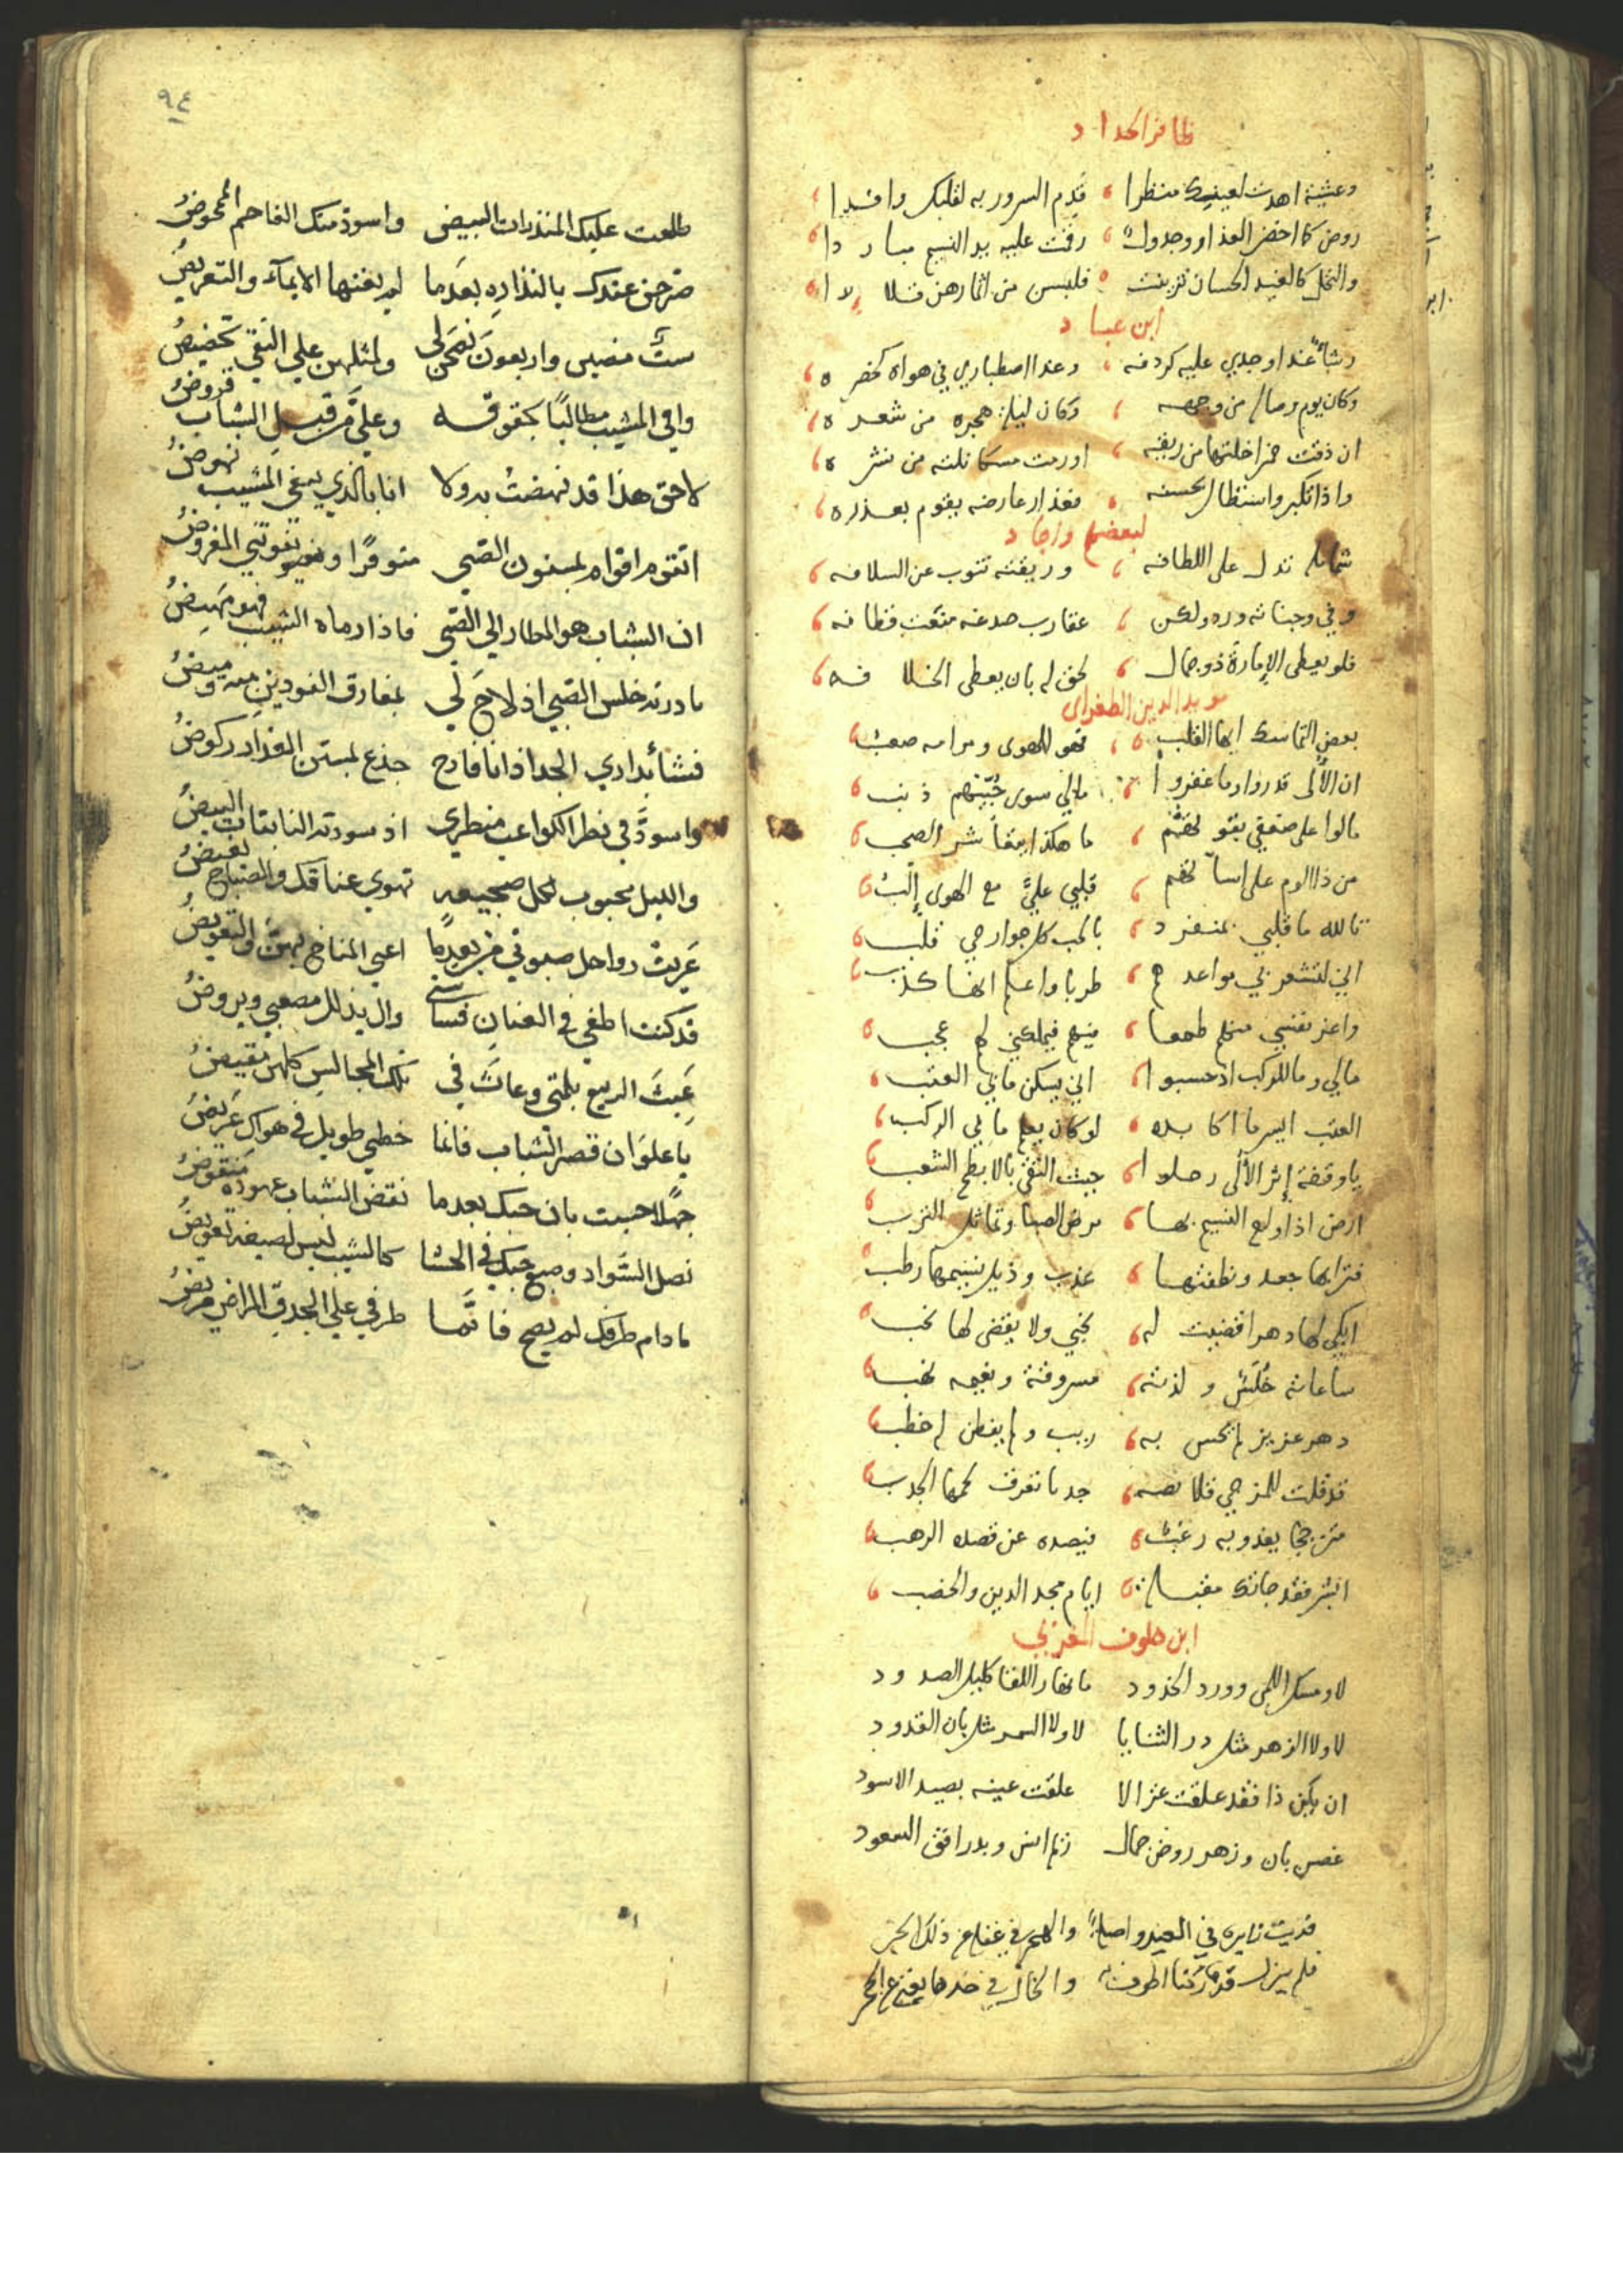 ظافر الحداد
وعشية اهدت لعينيك منظرا قدم السرور به لقلبك وافدا
روض كاخضر العذار وجدول رقت عليه يد النسيم مباردا
والنخل كالغيد الحسان تزينت فلبسن من اثمارهن قلايدا
ابن عباد
رشأ غدا وجدي عليه كردفه وغدا اصطباري في هواه كخصره
وكان يوم وصاله من وجهه وكان ليلة هجره من شعره
ان ذقت خمرا خلتها من ريقه اورمت مسكا نلته من نشره
واذا تكبر واستطال بحسنه فعذار عارضه يقوم بعذره
لبعضهم واجاد
شمايله تدل على اللطافه وريقته تنوب عن السلافه
وفي وجناته ورد ولكن عقارب صدغه منعت قطافه
فلو يعطى الإمارة ذو جمال لحق له بان يعطى الخلافه
مويد الدين الطغراى
بعض التماسك ايها القلب فهو الهوى ومرامه صعب
ان الأُلى قدروا وما غفروا مالي سوى حُبّيهم ذنب
مالوا على ضعفي بقوتهم ما هكذا يتعاشر الصحب
من ذا الوم على اساتهم قلبي عليّ مع الهوى إلْبُ
تالله ما قلبي بمنفرد بالحب كل جوارحي قلب
اني لتشعرني مواعدهم طربا واعلم انها كذب
واغر نفسي منهم طمعا منهم فيملكني لهم عجب
مالي وما للركب اذ حسبوا اني يسكن مابي العتب
العتب ايسر ما اكابده لو كان يعلم ما بي الركب
يا وقفة إثر الأُلى رحلوا حيث التقى بالابطح الشعب
ارض اذا ولع النسيم بها مرض الصبا وتماثل الترب
فترابها جعد ونطفتها عذب وذيل نسيمها رطب
ابكي لها دهرا قضيت له نحبي ولا يقضى لها نحب
ساعاته خُلَسٌ ولذته مسروقة ونعيمه نهب
دهر عزيز لم يحس به ريب ولم يفطن له خطب
قد قلت للمزجي قلائصه جدبا تعرق لحمها الجدب
يغدو به رغب فيصده عن قصده الرهب
ابشر فقد جاتك مقبلة ايام مجد الدين والخصب
ابن خلوف المغربي
لا ومسك اللمى وورد الخدود ما نهار اللقا كليل الصدود
لا ولا الزهر مثل در الثنايا لا ولا السمر مثل بان القدود
ان يكن ذا فقد علقت غزالا علقت عينه بصيد الاسود
غصن بان وزهر روض جمال ريم انس وبدر افق السعود
فديت زايرة في العيد واصلة والهجر في غفلة من ذلك الخبر
فلم يزل قدها ركنا اطوف به والخال في خدها يغني عن الحجر
٩٤
طلعت عليك المنذرات البيض واسود منك الفاحم الممحوض
صرحن عندك بالنذارة بعدما لم يغنها الايمآء والتعريض
ستٌّ مضين واربعون نصحن لي ولمثلهن علي التقي تحضيض
وافي المشيب مطالبًا بحقوقه وعليّ من قبل الشباب قروض
لاحق هذا قد نهضتُ به ولا انا بالذي يبغي المشيب نهوض
اتقوم اقوام بمسنون الصبي متوفرًا ويفوتني المفروض
ان الشباب هو المطار الي الصبي فاذا رماه الشيب فهو مهيض
بادرته خلس الصبي اذ لاح لي بمفارق الفودين منه وميض
جذع بمستن العذار ركوض
واسودّ في نظر الكواعب منظري اذ سودته النابتات البيض
والليل محبوب لكل ضجيعة تهوي عناقك والصباح بغيض
عَرِيَتْ رواحل صبوتي من بعدما اعيى المناخ بهن والتقويض
قد كنت اطغي في العنان فساسني وال يذلل مصعبي ويروض
عَبِثَ الربيع بلمتي وعاث في تلك المجالس كلهن بقيض
يا علو ان قصر الشباب فانما خطبي طويل في هواك عريض
جهلا حسبت بان حبك بعدما نقض الشباب عهوده منقوض
نصل السواد وصبغ حبك في الحشا كالشيب ليس لصبغه تعويض
مادام طرفك لم يصح فانما طرفي علي الحدق المراض مريض